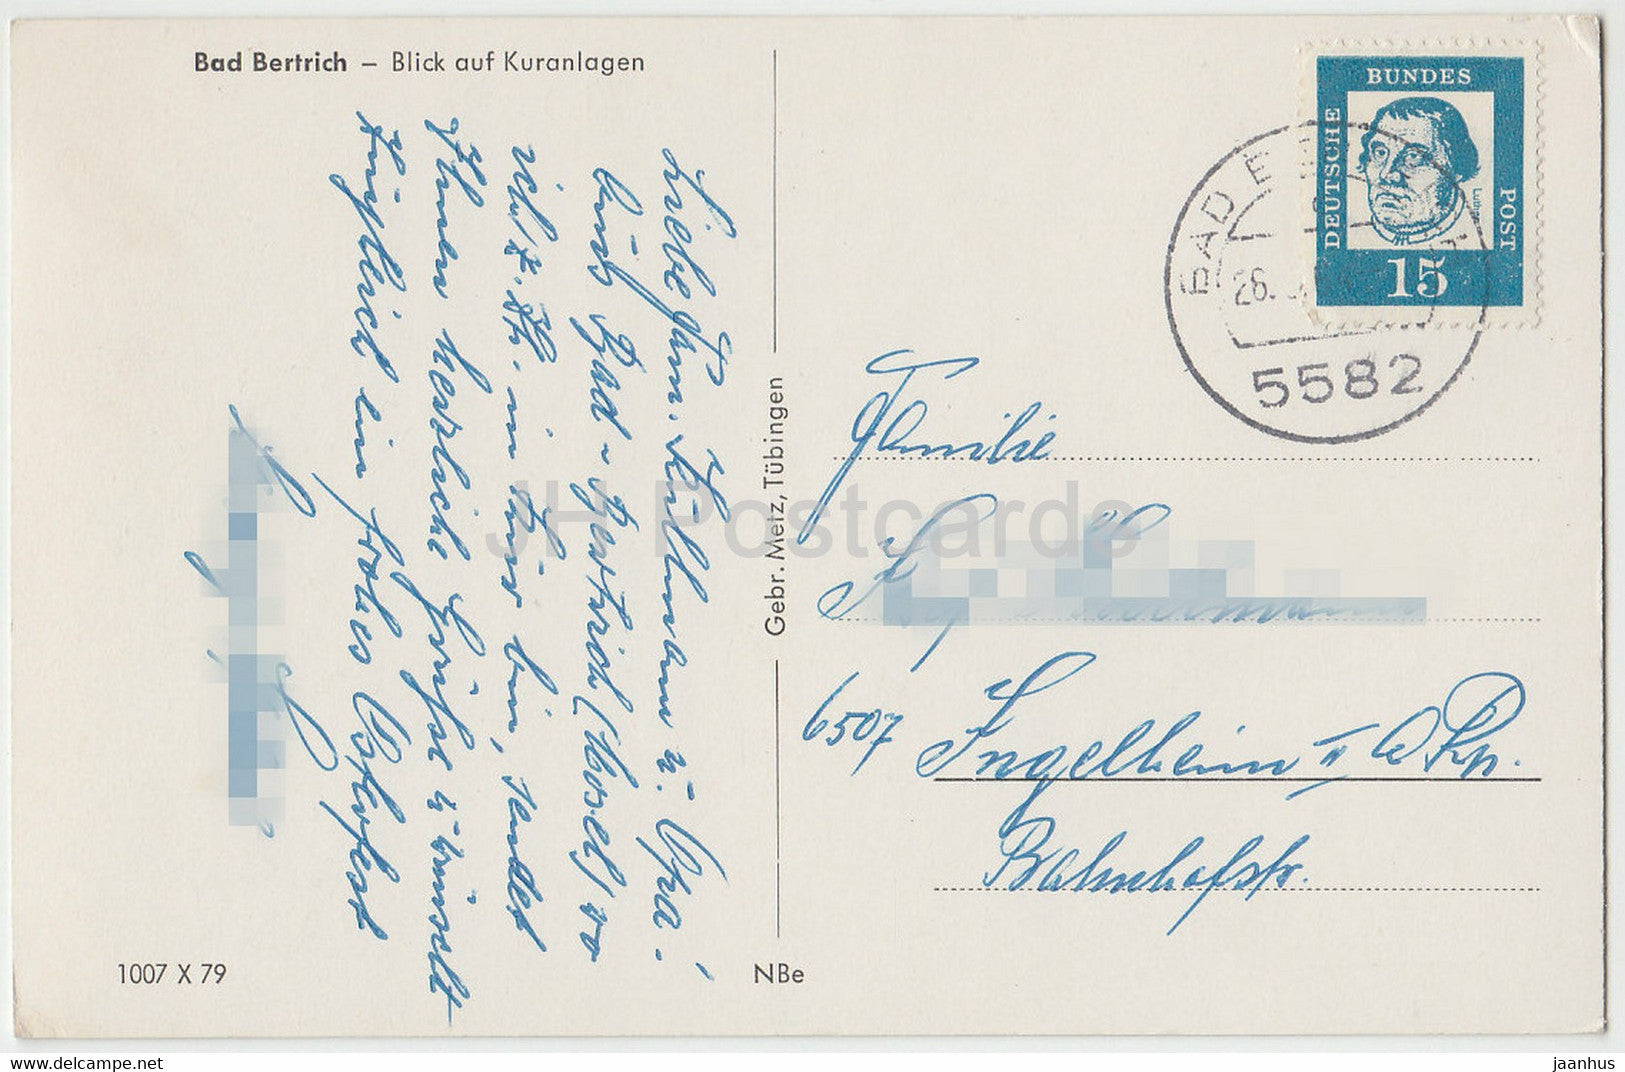 Bad Bertrich – Blick auf Kuranlagen
Liebe Fam. Küllmann u. Opa!
Aus Bad-Bertrich (Mosel) wo
ich z. Zt. in Kur bin, sendet
Ihnen herzliche Grüße u. wünscht
ein frohes Osterfest
1007 X 79
Gebr. Metz, Tübingen
NBe
DEUTSCHE BUNDES POST
Luther
15
BAD BE
26.
5582
Familie
6507 Ingelheim II a Rh.
Bahnhofstr.
JH Postcards
jaanhus
delcampe.net